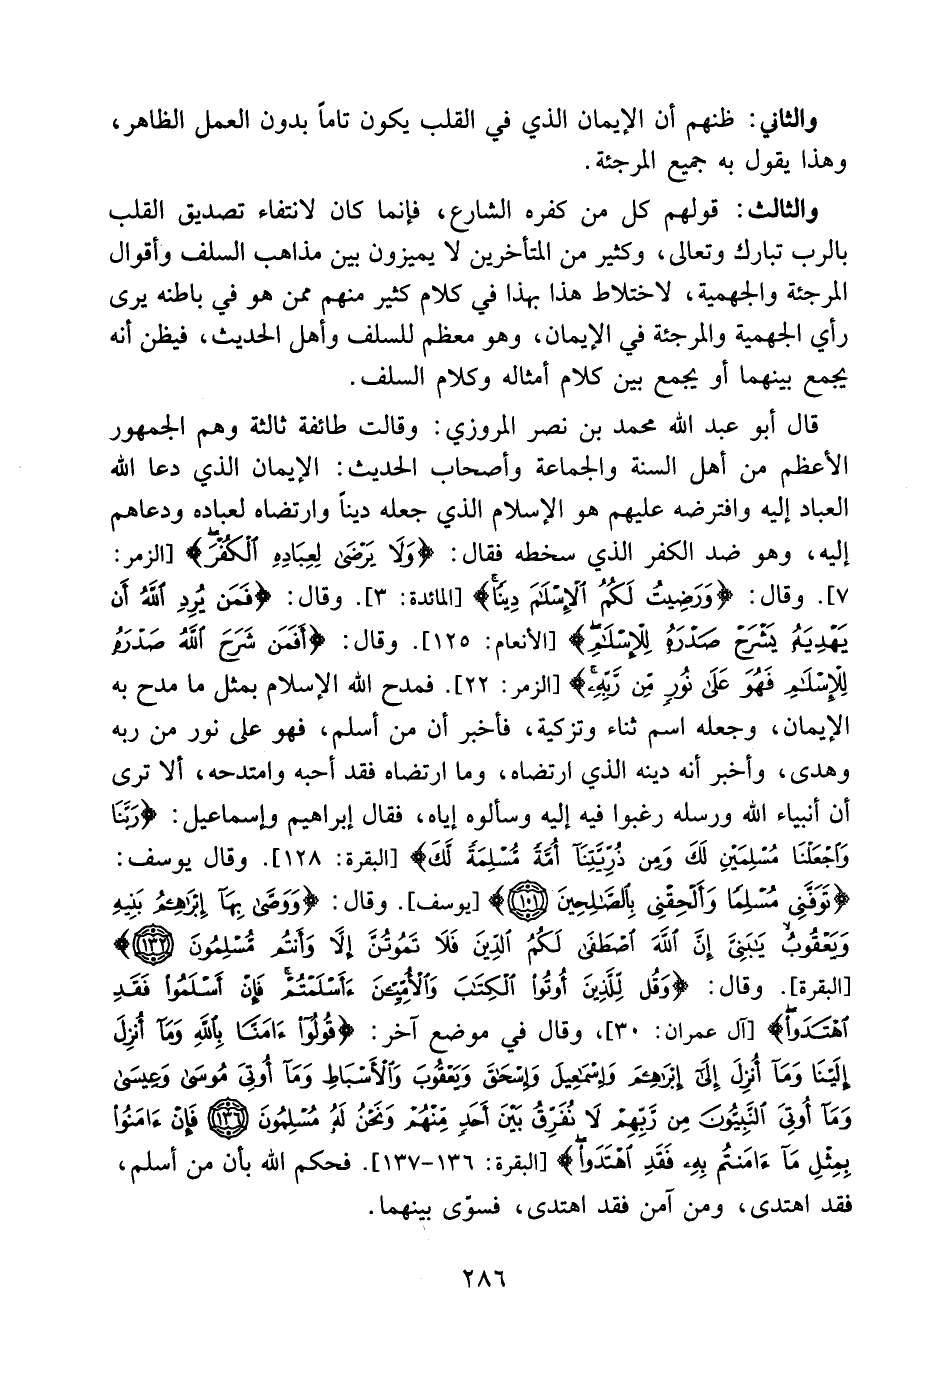 والثاني: ظنهم أن الإيمان الذي في القلب يكون تاماً بدون العمل الظاهر،
وهذا يقول به جميع المرجئة.
والثالث: قولهم كل من كفره الشارع، فإنما كان لانتفاء تصديق القلب
بالرب تبارك وتعالى، وكثير من المتأخرين لا يميزون بين مذاهب السلف وأقوال
المرجئة والجهمية، لاختلاط هذا بهذا في كلام كثير منهم ممن هو في باطنه يرى
رأي الجهمية والمرجئة في الإيمان، وهو معظم للسلف وأهل الحديث، فيظن أنه
يجمع بينهما أو يجمع بين كلام أمثاله وكلام السلف.
قال أبو عبد الله محمد بن نصر المروزي: وقالت طائفة ثالثة وهم الجمهور
الأعظم من أهل السنة والجماعة وأصحاب الحديث: الإيمان الذي دعا الله
العباد إليه وافترضه عليهم هو الإسلام الذي جعله ديناً وارتضاه لعباده ودعاهم
إليه، وهو ضد الكفر الذي سخطه فقال: ﴿وَلَا يَرْضَىٰ لِعِبَادِهِ ٱلْكُفْرَۖ﴾ [الزمر:
٧]. وقال: ﴿وَرَضِيتُ لَكُمُ ٱلْإِسْلَٰمَ دِينًاۚ﴾ [المائدة: ٣]. وقال: ﴿فَمَن يُرِدِ ٱللَّهُ أَن
يَهْدِيَهُۥ يَشْرَحْ صَدْرَهُۥ لِلْإِسْلَٰمِۖ﴾ [الأنعام: ١٢٥]. وقال: ﴿أَفَمَن شَرَحَ ٱللَّهُ صَدْرَهُۥ
لِلْإِسْلَٰمِ فَهُوَ عَلَىٰ نُورٍ مِّن رَّبِّهِۦۚ﴾ [الزمر: ٢٢]. فمدح الله الإسلام بمثل ما مدح به
الإيمان، وجعله اسم ثناء وتزكية، فأخبر أن من أسلم، فهو على نور من ربه
وهدى، وأخبر أنه دينه الذي ارتضاه، وما ارتضاه فقد أحبه وامتدحه، ألا ترى
أن أنبياء الله ورسله رغبوا فيه إليه وسألوه إياه، فقال إبراهيم وإسماعيل: ﴿رَبَّنَا
وَٱجْعَلْنَا مُسْلِمَيْنِ لَكَ وَمِن ذُرِّيَّتِنَآ أُمَّةً مُّسْلِمَةً لَّكَ﴾ [البقرة: ١٢٨]. وقال يوسف:
﴿تَوَفَّنِى مُسْلِمًا وَأَلْحِقْنِى بِٱلصَّٰلِحِينَ ١٠١﴾ [يوسف]. وقال: ﴿وَوَصَّىٰ بِهَآ إِبْرَٰهِـۧمُ بَنِيهِ
وَيَعْقُوبُ يَٰبَنِىَّ إِنَّ ٱللَّهَ ٱصْطَفَىٰ لَكُمُ ٱلدِّينَ فَلَا تَمُوتُنَّ إِلَّا وَأَنتُم مُّسْلِمُونَ ١٣٢﴾
[البقرة]. وقال: ﴿وَقُل لِّلَّذِينَ أُوتُوا۟ ٱلْكِتَٰبَ وَٱلْأُمِّيِّـۧنَ ءَأَسْلَمْتُمْۚ فَإِنْ أَسْلَمُوا۟ فَقَدِ
ٱهْتَدَوا۟ۖ﴾ [آل عمران: ٣٠]، وقال في موضع آخر: ﴿قُولُوٓا۟ ءَامَنَّا بِٱللَّهِ وَمَآ أُنزِلَ
إِلَيْنَا وَمَآ أُنزِلَ إِلَىٰٓ إِبْرَٰهِـۧمَ وَإِسْمَٰعِيلَ وَإِسْحَٰقَ وَيَعْقُوبَ وَٱلْأَسْبَاطِ وَمَآ أُوتِىَ مُوسَىٰ وَعِيسَىٰ
وَمَآ أُوتِىَ ٱلنَّبِيُّونَ مِن رَّبِّهِمْ لَا نُفَرِّقُ بَيْنَ أَحَدٍ مِّنْهُمْ وَنَحْنُ لَهُۥ مُسْلِمُونَ ١٣٦ فَإِنْ ءَامَنُوا۟
بِمِثْلِ مَآ ءَامَنتُم بِهِۦ فَقَدِ ٱهْتَدَوا۟ۖ﴾ [البقرة: ١٣٦-١٣٧]. فحكم الله بأن من أسلم،
فقد اهتدى، ومن آمن فقد اهتدى، فسوّى بينهما.
٢٨٦